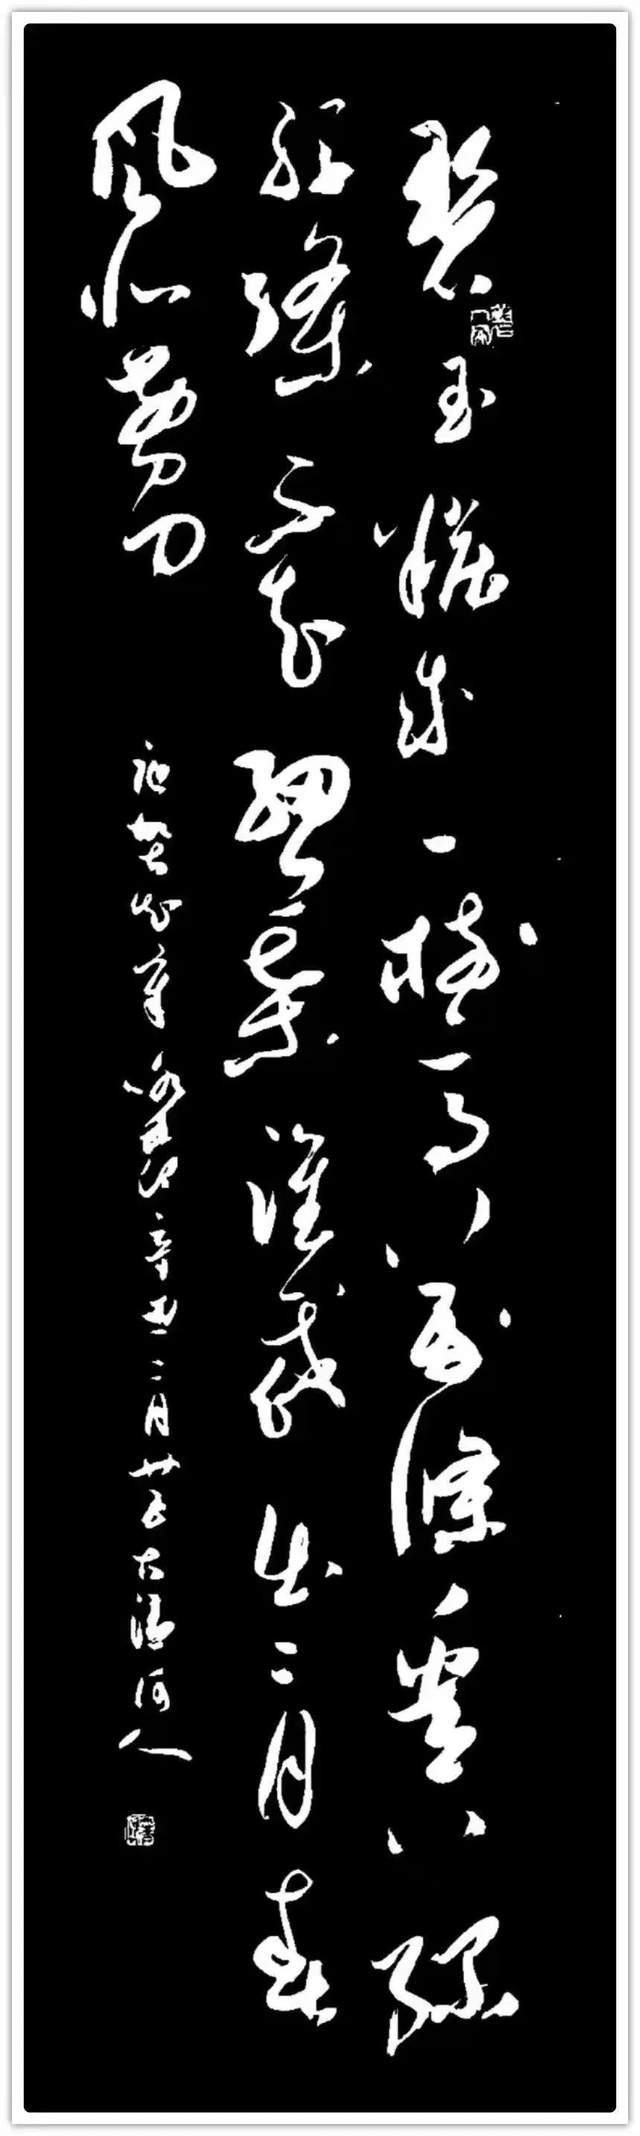 碧玉妝成一樹高萬條垂下綠
絲絛不知細葉誰裁出二月春
風似剪刀
賀知章詠柳辛丑二月廿五大清河人